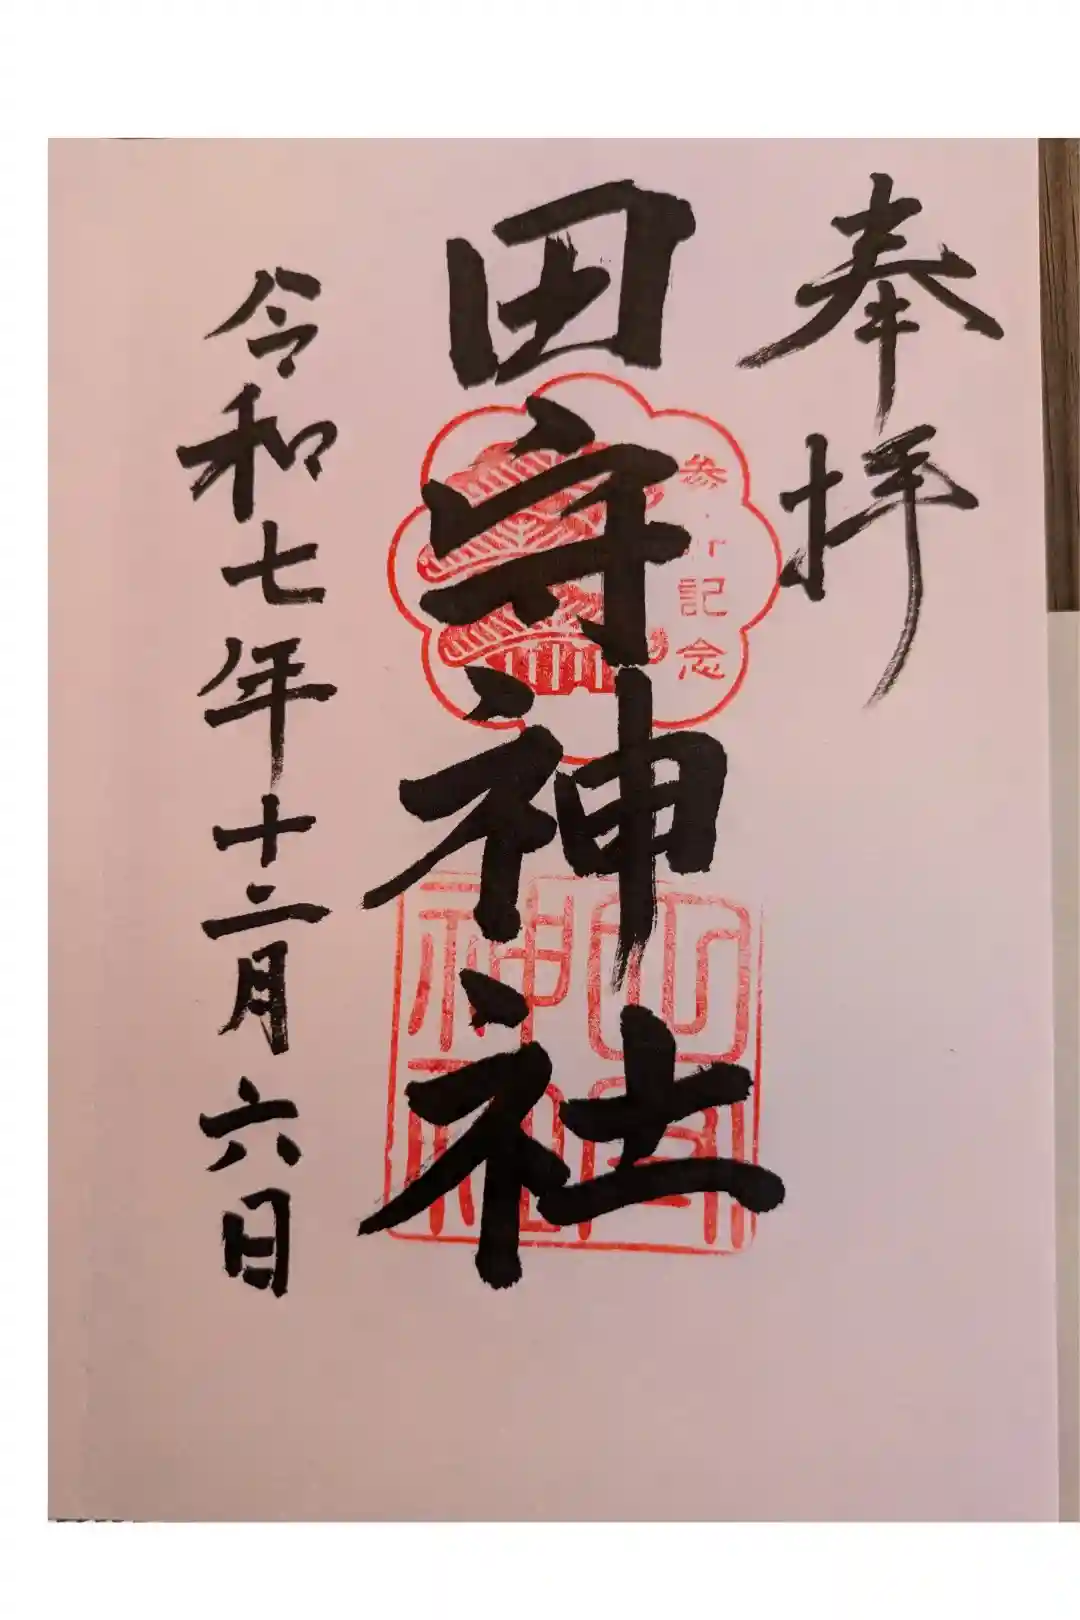 奉拝
田守神社
令和七年十二月六日
参
記念
田守
神社